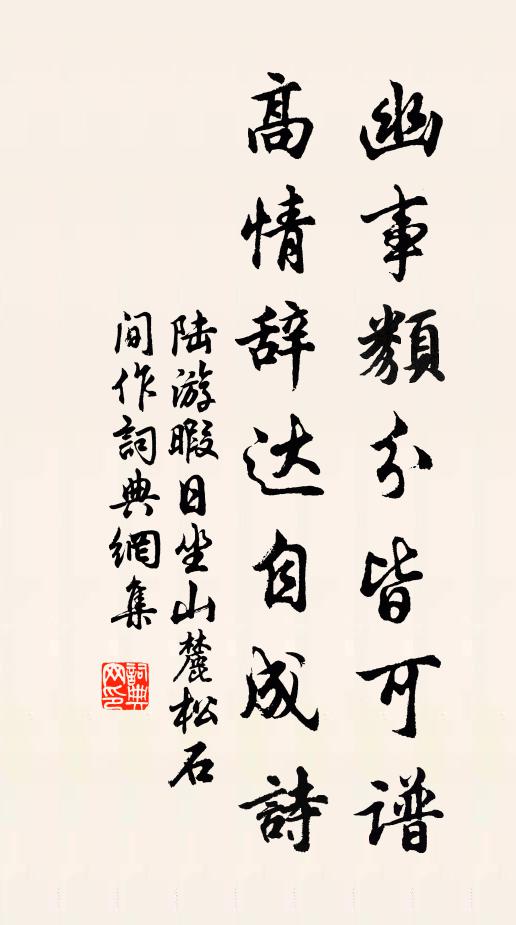 幽事類分皆可谱
高情辞达自成詩
陆游暇日坐山麓松石
间作詞典網集
詞典
网印